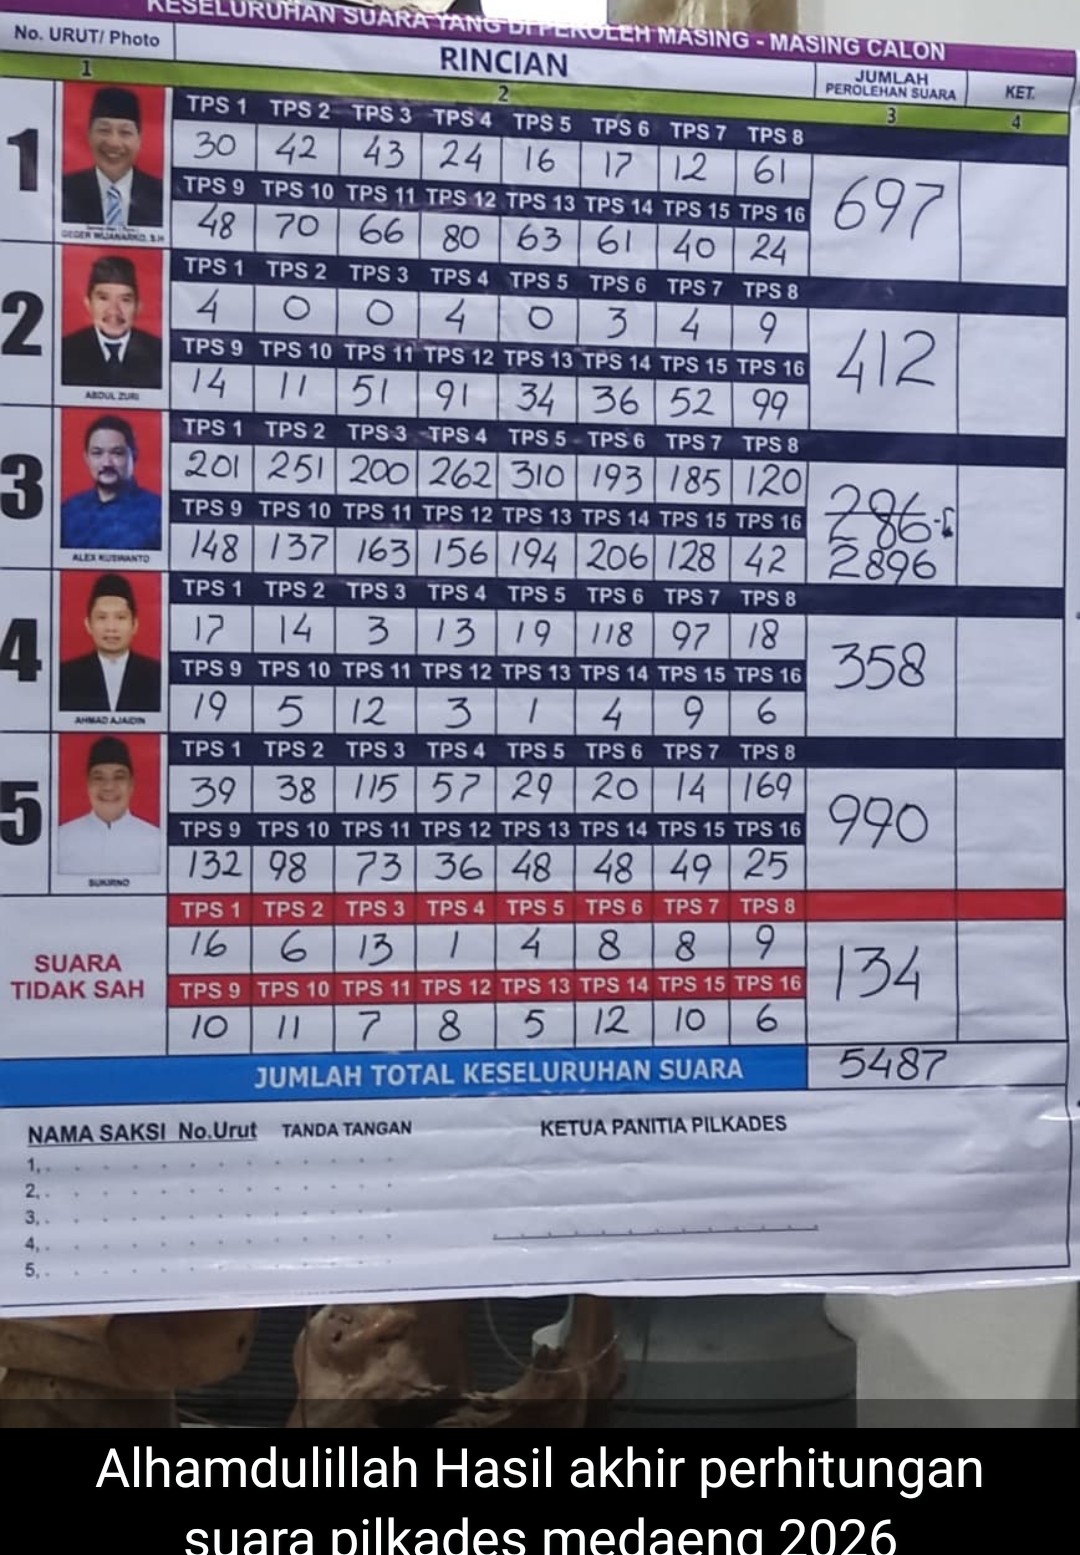 KESELURUHAN SUARA YANG DI PEROLEH MASING - MASING CALON
No. URUT/ Photo RINCIAN JUMLAH PEROLEHAN SUARA KET.
1 2 3 4
1
TPS 1 TPS 2 TPS 3 TPS 4 TPS 5 TPS 6 TPS 7 TPS 8
30 42 43 24 16 17 12 61
697
TPS 9 TPS 10 TPS 11 TPS 12 TPS 13 TPS 14 TPS 15 TPS 16
48 70 66 80 63 61 40 24
GEGER WIJANARKO, S.H
2
TPS 1 TPS 2 TPS 3 TPS 4 TPS 5 TPS 6 TPS 7 TPS 8
4 0 0 4 0 3 4 9
412
TPS 9 TPS 10 TPS 11 TPS 12 TPS 13 TPS 14 TPS 15 TPS 16
14 11 51 91 34 36 52 99
ABDUL ZURI
3
TPS 1 TPS 2 TPS 3 TPS 4 TPS 5 TPS 6 TPS 7 TPS 8
201 251 200 262 310 193 185 120
286
TPS 9 TPS 10 TPS 11 TPS 12 TPS 13 TPS 14 TPS 15 TPS 16
148 137 163 156 194 206 128 42
2896
ALEX KUSWANTO
4
TPS 1 TPS 2 TPS 3 TPS 4 TPS 5 TPS 6 TPS 7 TPS 8
17 14 3 13 19 118 97 18
358
TPS 9 TPS 10 TPS 11 TPS 12 TPS 13 TPS 14 TPS 15 TPS 16
19 5 12 3 1 4 9 6
AHMAD AJAIDIN
5
TPS 1 TPS 2 TPS 3 TPS 4 TPS 5 TPS 6 TPS 7 TPS 8
39 38 115 57 29 20 14 169
990
TPS 9 TPS 10 TPS 11 TPS 12 TPS 13 TPS 14 TPS 15 TPS 16
132 98 73 36 48 48 49 25
SUKIRNO
SUARA
TIDAK SAH
TPS 1 TPS 2 TPS 3 TPS 4 TPS 5 TPS 6 TPS 7 TPS 8
16 6 13 1 4 8 8 9
134
TPS 9 TPS 10 TPS 11 TPS 12 TPS 13 TPS 14 TPS 15 TPS 16
10 11 7 8 5 12 10 6
JUMLAH TOTAL KESELURUHAN SUARA 5487
NAMA SAKSI No.Urut TANDA TANGAN KETUA PANITIA PILKADES
1,
2,
3,
4,
5,
Alhamdulillah Hasil akhir perhitungan
suara pilkades medaeng 2026